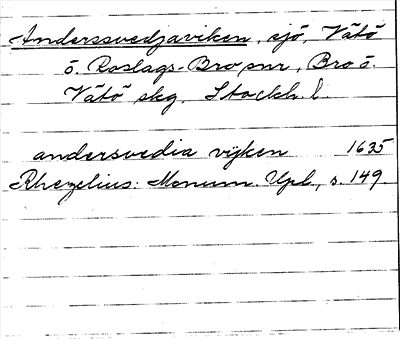 Anderssvedjaviken, sjö, Vätö
o. Roslags-Bro snr, Bro o.
Vätö skg, Stockh. l.
andersvedia vijken 1635
Rhezelius: Monum. Upl., s. 149.